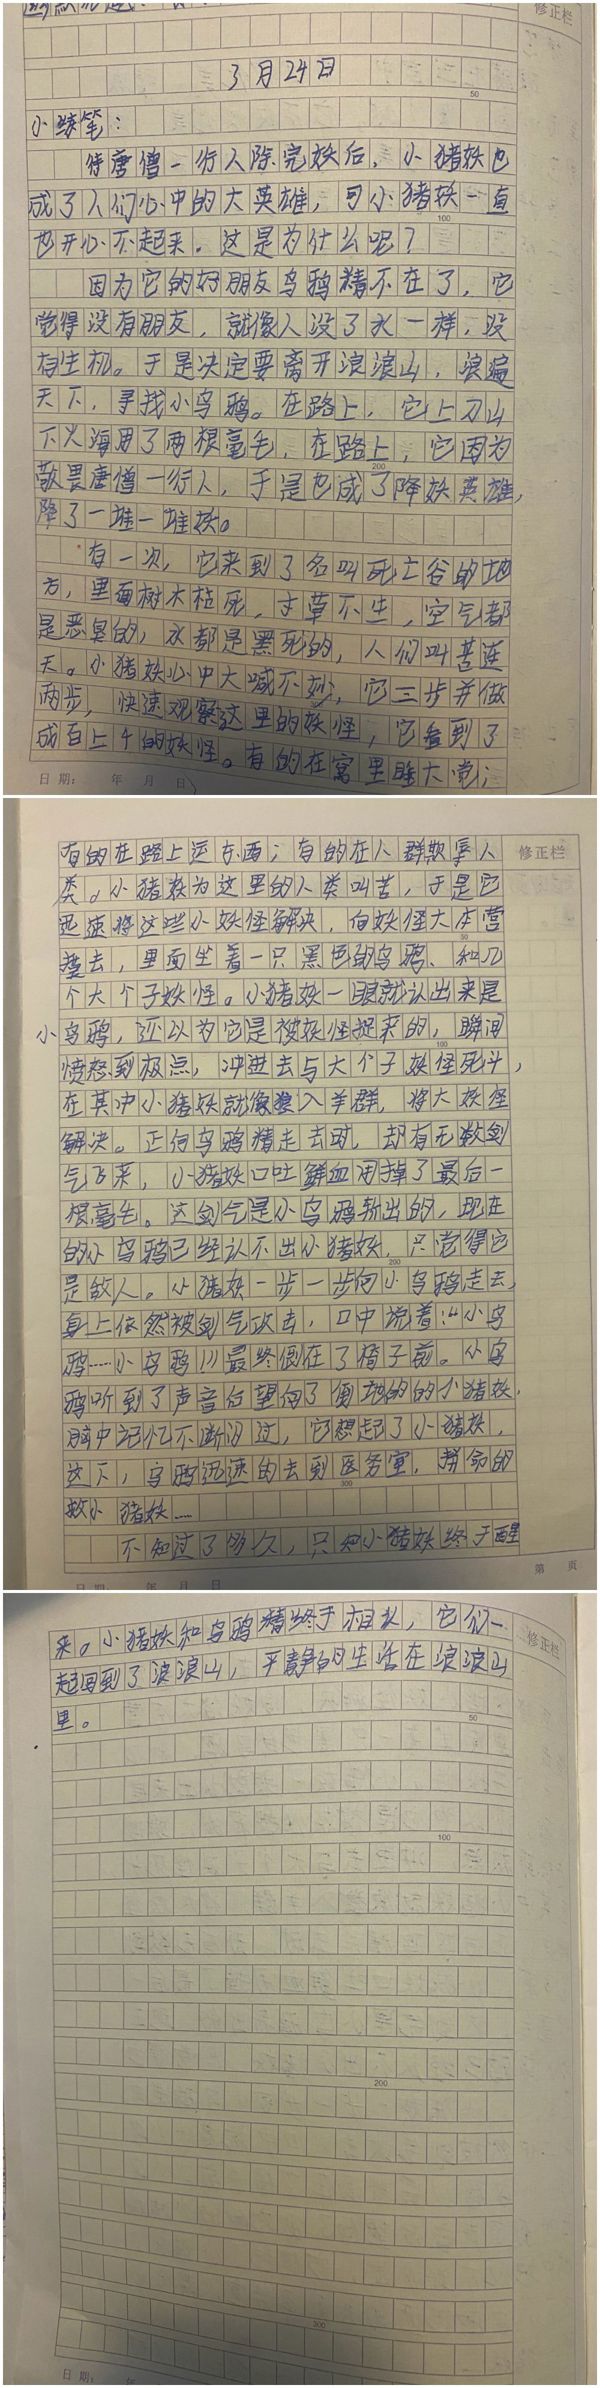 修正栏
3月24日
50
小练笔：
待唐僧一行人除完妖后，小猪妖也
成了人们心中的大英雄，可小猪妖一直
100
也开心不起来。这是为什么呢？
因为它的好朋友乌鸦精不在了，它
觉得没有朋友，就像人没了水一样，没
有生机。于是决定要离开浪浪山，浪遍
天下，寻找小乌鸦。在路上，它上刀山
下火海用了两根毫毛，在路上，它因为
200
敬畏唐僧一行人，于是也成了降妖英雄，
降了一堆一堆妖。
有一次，它来到了名叫死亡谷的地
方，里面树木枯死，寸草不生，空气都
是恶臭的，水都是黑死的，人们叫苦连
天。小猪妖心中大喊不妙，它三步并做
两步，快速观察这里的妖怪，它看到了
成百上千的妖怪。有的在窝里睡大觉；
日期： 年 月 日
有的在路上运东西；有的在人群欺辱人
修正栏
类。小猪妖为这里的人类叫苦，于是它
迅速将这些小妖怪解决，向妖怪大本营
50
走去，里面坐着一只黑色的乌鸦、和几
个大个子妖怪。小猪妖一眼就认出来是
小乌鸦，还以为它是被妖怪捉来的，瞬间
100
愤怒到极点，冲进去与大个子妖怪死斗，
在其冲小猪妖就像狼入羊群，将大妖怪
解决。正向乌鸦精走去时，却有无数剑
气飞来，小猪妖口吐鲜血用掉了最后一
根毫毛。这剑气是小乌鸦斩出的，现在
的小乌鸦已经认不出小猪妖，只觉得它
200
是敌人。小猪妖一步一步向小乌鸦走去，
身上依然被剑气攻击，口中说着：“小乌
鸦……小乌鸦！”最终倒在了椅子前。小乌
鸦听到了声音后望向了倒地的的小猪妖，
脑中记忆不断闪过，它想起了小猪妖，
这下，乌鸦迅速的去到医务室，拼命的
300
救小猪妖……
不知过了多久，只知小猪妖终于醒
第 页
日期： 年 月 日
来。小猪妖和乌鸦精终于相认，它们一
修正栏
起回到了浪浪山，平静的生活在浪浪山
里。
50
100
200
300
日期： 年